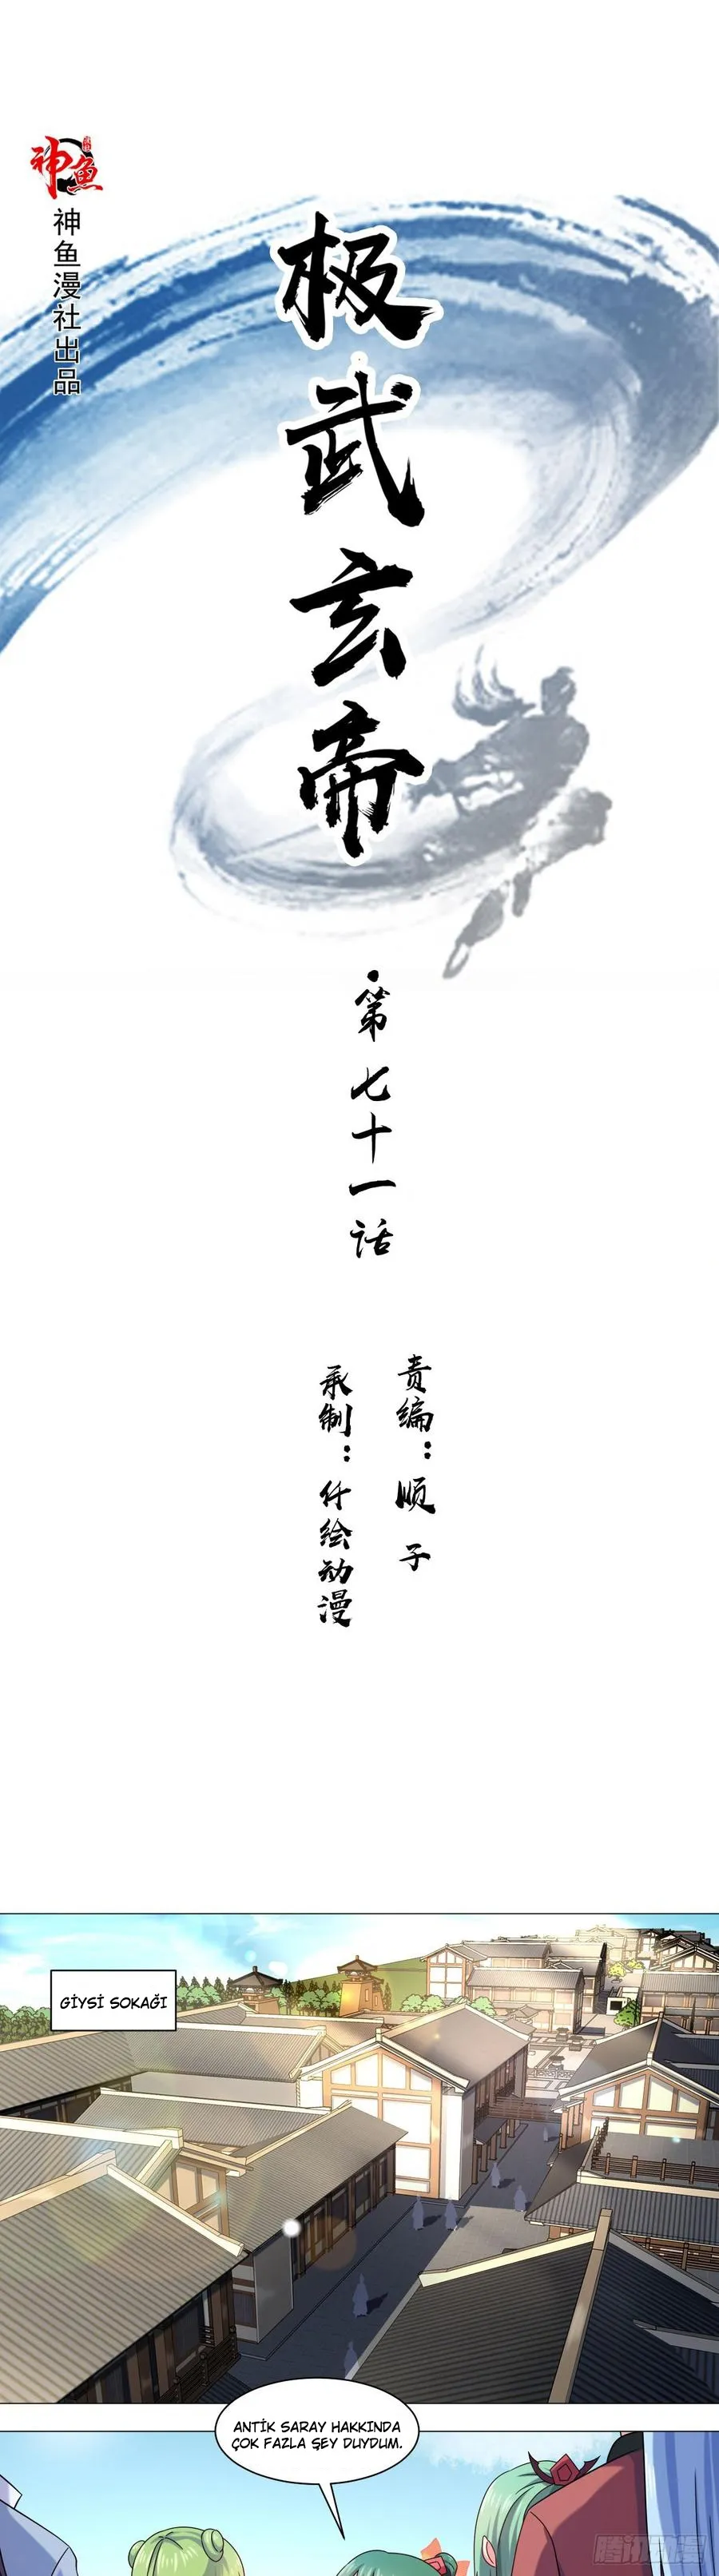 神鱼
漫社
神鱼漫社出品
极武玄帝
·第七十一话
责编：顺子
承制：仟绘动漫
GİYSİ SOKAĞI
ANTİK SARAY HAKKINDA
ÇOK FAZLA ŞEY DUYDUM.
腾讯动漫